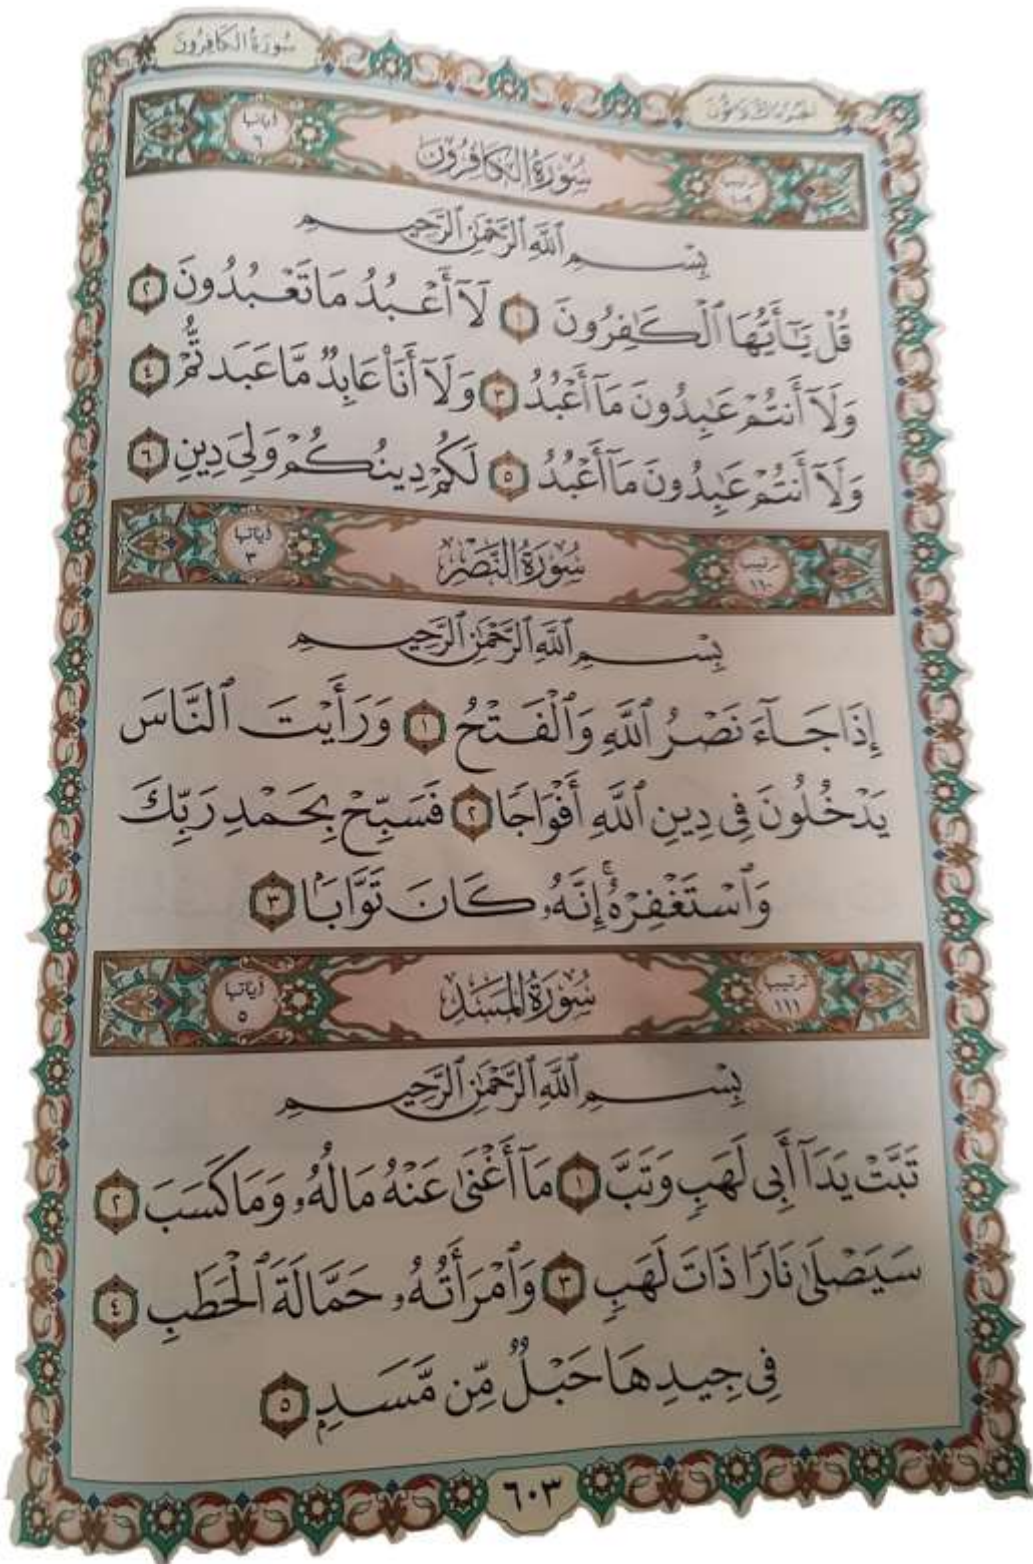 سُورَةُ الكَافِرُونَ
الجزء الثلاثون
ترتيبها ١٠٩ سُورَةُ الكَافِرُونَ آياتها ٦
بِسْمِ ٱللَّهِ ٱلرَّحْمَٰنِ ٱلرَّحِيمِ
قُلْ يَٰٓأَيُّهَا ٱلْكَٰفِرُونَ ١ لَآ أَعْبُدُ مَا تَعْبُدُونَ ٢
وَلَآ أَنتُمْ عَٰبِدُونَ مَآ أَعْبُدُ ٣ وَلَآ أَنَا۠ عَابِدٌ مَّا عَبَدتُّمْ ٤
وَلَآ أَنتُمْ عَٰبِدُونَ مَآ أَعْبُدُ ٥ لَكُمْ دِينُكُمْ وَلِىَ دِينِ ٦
ترتيبها ١١٠ سُورَةُ النَّصْرِ آياتها ٣
بِسْمِ ٱللَّهِ ٱلرَّحْمَٰنِ ٱلرَّحِيمِ
إِذَا جَآءَ نَصْرُ ٱللَّهِ وَٱلْفَتْحُ ١ وَرَأَيْتَ ٱلنَّاسَ
يَدْخُلُونَ فِى دِينِ ٱللَّهِ أَفْوَاجًا ٢ فَسَبِّحْ بِحَمْدِ رَبِّكَ
وَٱسْتَغْفِرْهُ ۚ إِنَّهُۥ كَانَ تَوَّابًۢا ٣
ترتيبها ١١١ سُورَةُ المَسَدِ آياتها ٥
بِسْمِ ٱللَّهِ ٱلرَّحْمَٰنِ ٱلرَّحِيمِ
تَبَّتْ يَدَآ أَبِى لَهَبٍ وَتَبَّ ١ مَآ أَغْنَىٰ عَنْهُ مَالُهُۥ وَمَا كَسَبَ ٢
سَيَصْلَىٰ نَارًا ذَاتَ لَهَبٍ ٣ وَٱمْرَأَتُهُۥ حَمَّالَةَ ٱلْحَطَبِ ٤
فِى جِيدِهَا حَبْلٌ مِّن مَّسَدٍۭ ٥
٦٠٣